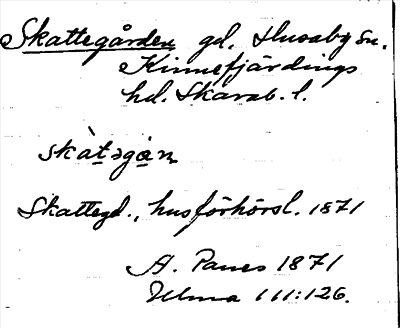 Skattegården gd. Husaby sn.
Kinnefjärdings
hd. Skarab. l.
skàtəgán
Skattegd., husförhörsl. 1871
A. Panes 1871
111:126.